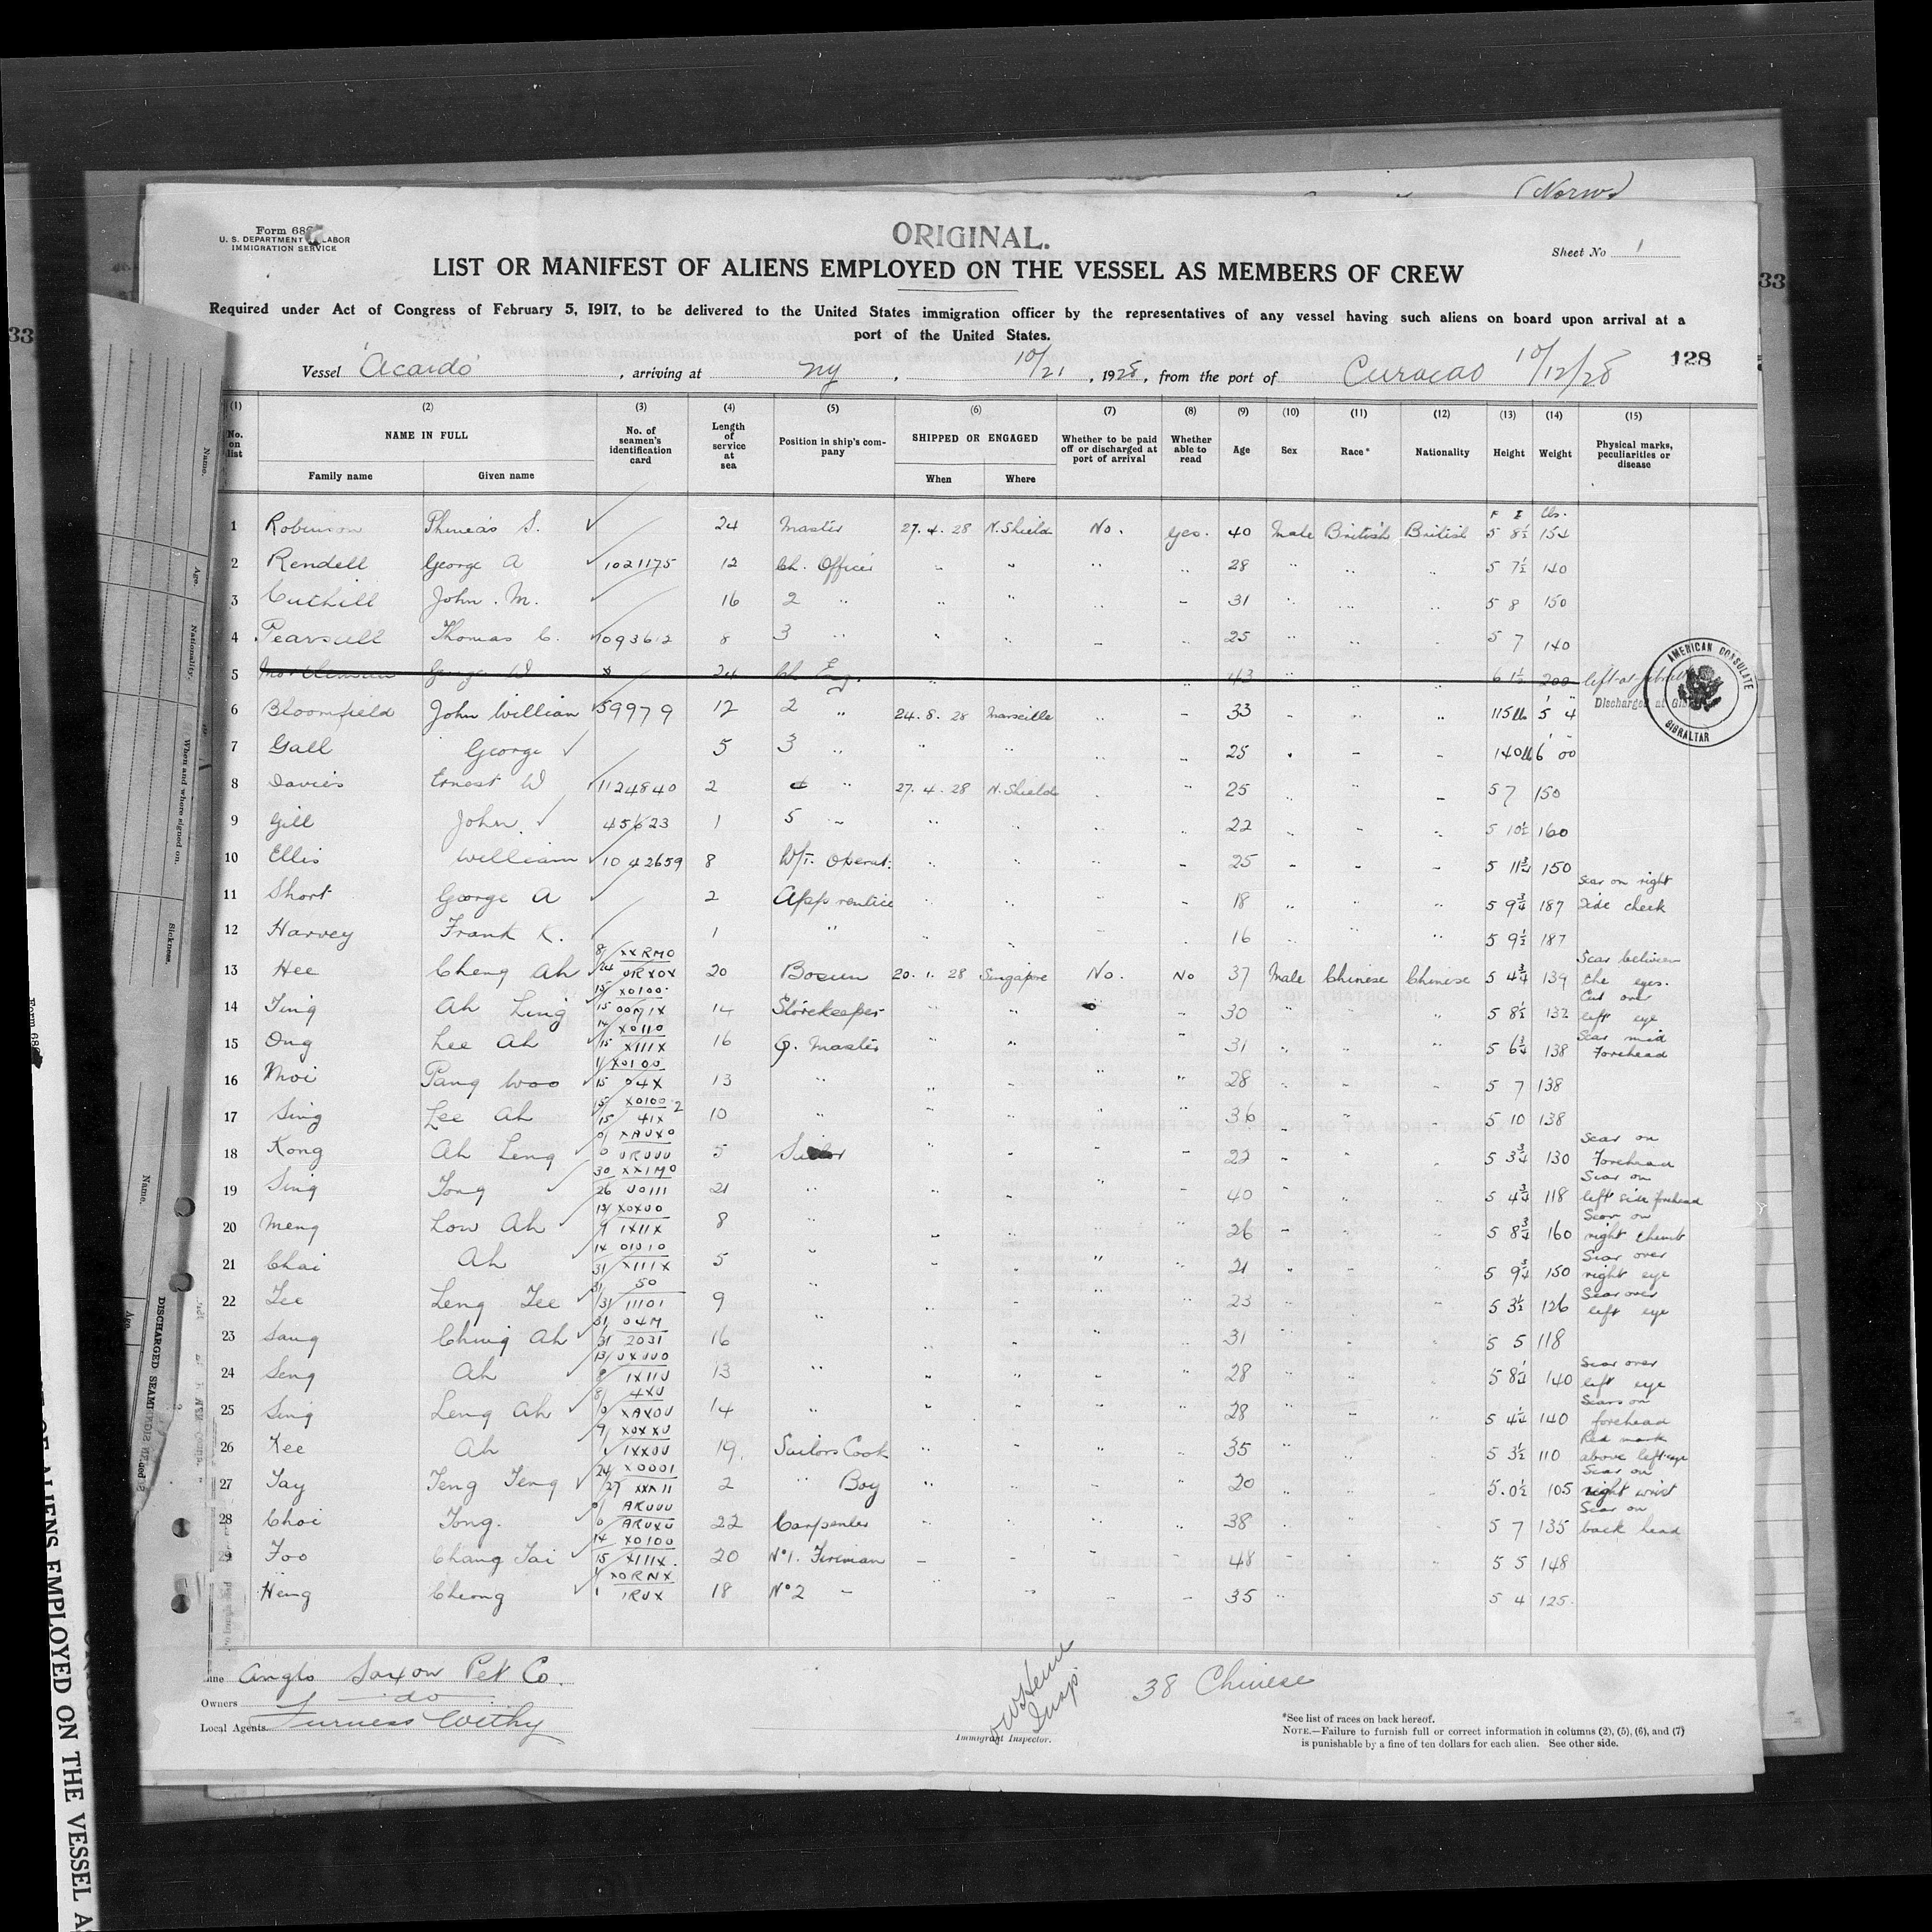 (Norw)
Form 68
U. S. DEPARTMENT LABOR
IMMIGRATION SERVICE
ORIGINAL.
Sheet No 1
LIST OR MANIFEST OF ALIENS EMPLOYED ON THE VESSEL AS MEMBERS OF CREW
Required under Act of Congress of February 5, 1917, to be delivered to the United States immigration officer by the representatives of any vessel having such aliens on board upon arrival at a
port of the United States.
128
Vessel "Acardo" , arriving at NY , 10/21 , 1928, from the port of Curacao 10/12/28
(1) (2) (3) (4) (5) (6) (7) (8) (9) (10) (11) (12) (13) (14) (15)
No. on list NAME IN FULL No. of seamen's identification card Length of service at sea Position in ship's company SHIPPED OR ENGAGED Whether to be paid off or discharged at port of arrival Whether able to read Age Sex Race* Nationality Height Weight Physical marks, peculiarities or disease
Family name Given name When Where
F I Lbs.
1 Robinson Phineas S. 24 Master 27.4.28 N.Shield No. Yes. 40 Male British British 5 8½ 154
2 Rendell George A 1021175 12 Ch. Officer " " " " 28 " " " 5 7½ 140
3 Cuthill John. M. 16 2 " " " " " 31 " " " 5 8 150
4 Pearsall Thomas C. 1093612 8 3 " " " " " 25 " " " 5 7 140
5 George W 24 Ch Eng. 43 6 1½ 200 left at
Discharged at Gi
AMERICAN CONSULATE
GIBRALTAR
6 Bloomfield John William 59979 12 2 " 24.8.28 Marseille " " 33 " " " 115lb 5' 4"
7 Gall George 5 3 " " " " " 25 " " " 140lb 6' 00
8 Davies Ernest W 1124840 2 4 " 27.4.28 N.Shield " " 25 " " " 5 7 150
9 Gill John 1 5 " " " " " 22 " " " 5 10½ 160
10 Ellis William 1042659 8 W/T. Operat. " " " " 25 " " " 5 11¾ 150
11 Short George A 2 Apprentice " " " " 18 " " " 5 9¾ 187 Scar on right side cheek
12 Harvey Frank K. 1 " " " " " 16 " " " 5 9½ 187
13 Hee Cheng Ah 8/24 XXRMO URXOX 20 Bosun 20.1.28 Singapore No. No 37 Male Chinese Chinese 5 4¾ 139 Scar between the eyes.
14 Ting Ah Ling 15/15 X0100 00M1X 14 Storekeeper " " " " 30 " " " 5 8½ 132 Cut over left eye
15 Ong Lee Ah 14/15 X0110 X111X 16 Q. Master " " " " 31 " " " 5 6¾ 138 Scar mid Forehead
16 Moi Pang Woo 1/15 X0100 04X 13 " " " " " 28 " " " 5 7 138
17 Sing Lee Ah 15/15 X0100 2 41X 10 " " " " " 36 " " " 5 10 138
18 Kong Ah Leng 0/0 XAUXO URUUU 5 Sailor " " " " 22 " " " 5 3¾ 130 Scar on Forehead
19 Sing Tong 30/26 XX1MO U0111 21 " " " " " 40 " " " 5 4¾ 118 Scar on left side forehead
20 Meng Low Ah 13/9 XOXUO 1X11X 8 " " " " " 26 " " " 5 8¾ 160 Scar on right thumb
21 Chai Ah 14/31 01010 X111X 5 " " " " " 21 " " " 5 9¾ 150 Scar over right eye
22 Lee Leng Tee 31/31 50 11101 9 " " " " " 23 " " " 5 3½ 126 Scar over left eye
23 Sang Ching Ah 31/31 04M 2031 16 " " " " " 31 " " " 5 5 118
24 Seng Ah 13/8 UXUUO 1X11U 13 " " " " " 28 " " " 5 8¼ 140 Scar over left eye
25 Sing Leng Ah 8/10 4XU XAXOU 14 " " " " " 28 " " " 5 4¼ 140 Scars on forehead
26 Kee Ah 9/1 XUXXU 1XXOU 19 Sailors Cook " " " " 35 " " " 5 3½ 110 Red mark above left eye
27 Tay Teng Teng 24/27 X0001 2 " Boy " " " " 20 " " " 5.0½ 105 Scar on right wrist
28 Choi Tong. 0/0 ARUUU ARUXU 22 Carpenter " " " " 38 " " " 5 7 135 Scar on back head
29 Foo Chang Tai 14/15 X0100 X111X. 20 No1. Fireman " " " " 48 " " " 5 5 148
Heng Cheong 1/1 XORNX 1RUX 18 No2 " " " " " 35 " 5 4 125.
Line Anglo Saxon Pet Co.
Owners do
Local Agents Furness Withy
Insp
Immigrant Inspector.
38 Chinese
*See list of races on back hereof.
NOTE.—Failure to furnish full or correct information in columns (2), (5), (6), and (7)
is punishable by a fine of ten dollars for each alien. See other side.
33
33
Name.
Age.
Nationality.
When and where signed on.
Sickness.
Name.
Age
DISCHARGED SEAM
OF ALIENS EMPLOYED ON THE VESSEL AS